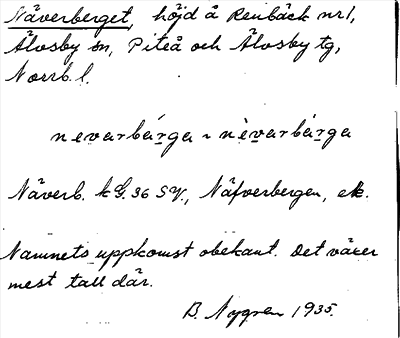 Näverberget, höjd å Renbäck nr 1,
Älvsby sn, Piteå och Älvsby tg,
Norrb. l.
nevarbárga ~ nèvarbárga
Näverb. kG. 36 SV., Näfverbergen, ek.
Namnets uppkomst obekant. Det växer
mest tall där.
B. Nygren 1935.